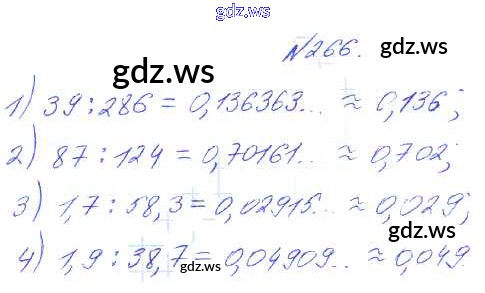 gdz.ws
№266.
gdz.ws
gdz.ws
1) 39 : 286 = 0,136363... ≈ 0,136;
2) 87 : 124 = 0,70161.. ≈ 0,702;
3) 1,7 : 58,3 = 0,02915.. ≈ 0,029;
gdz.ws
4) 1,9 : 38,7 = 0,04909.. ≈ 0,049.
gdz.ws